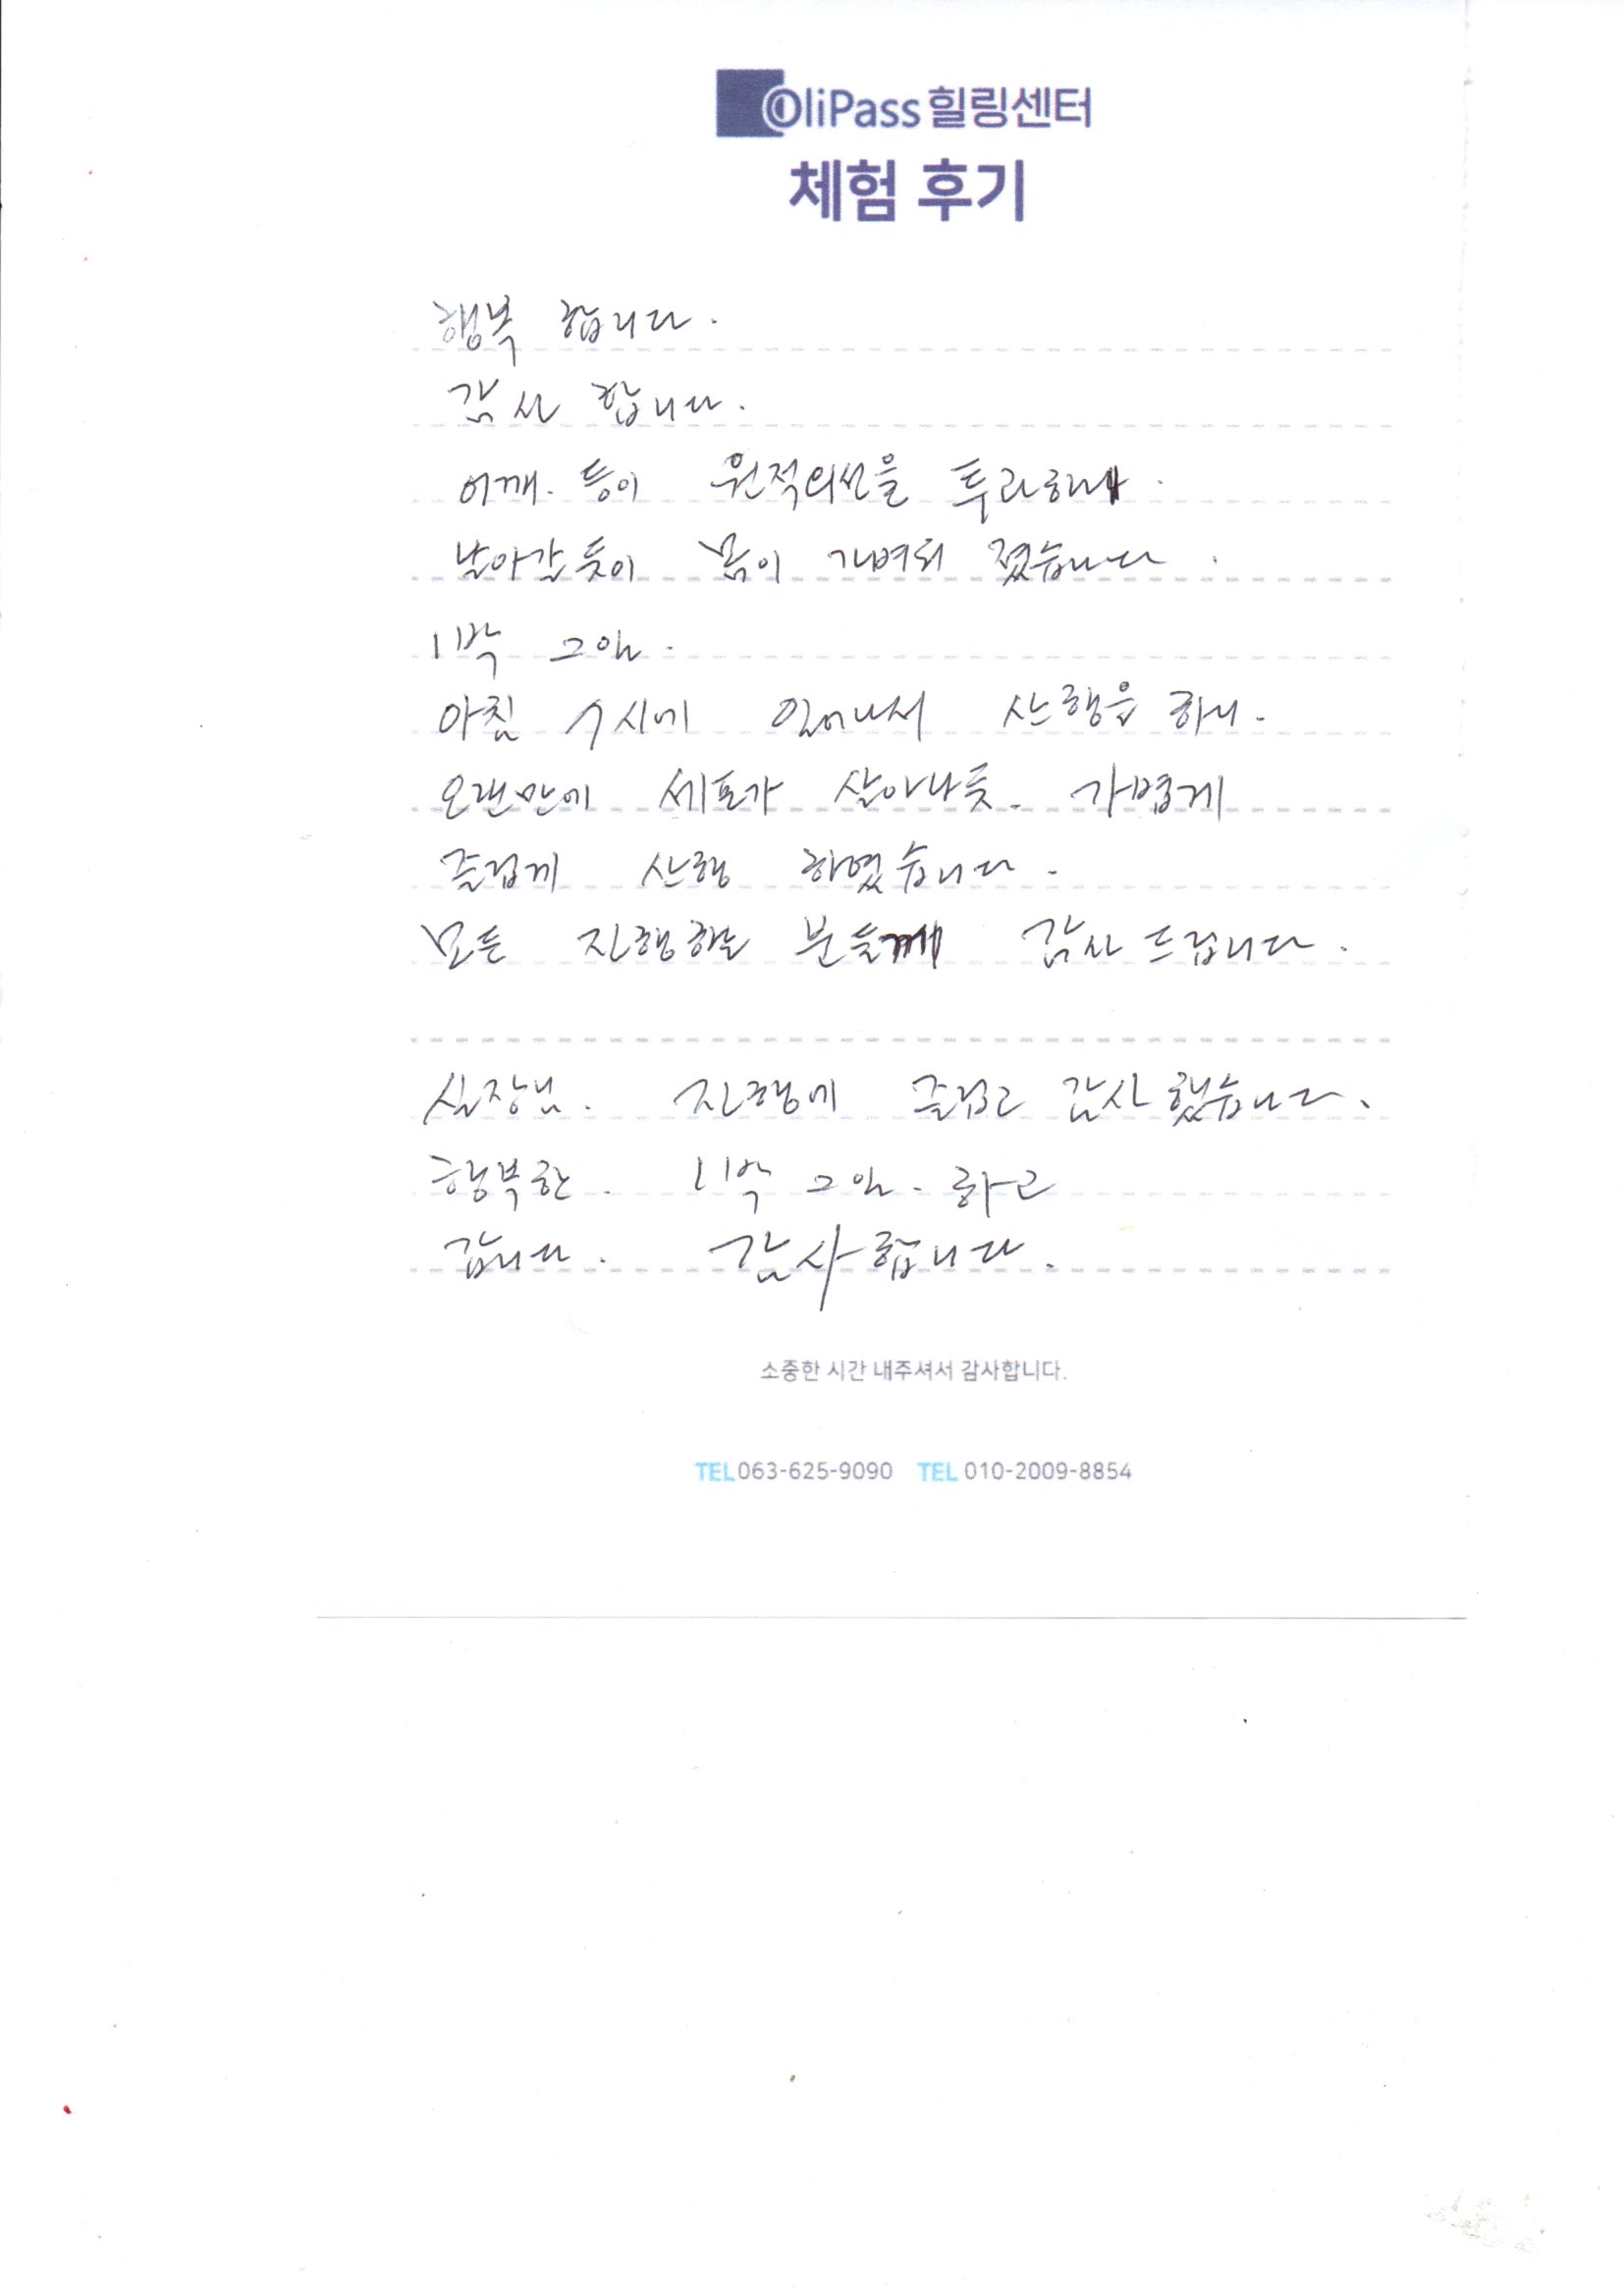 OliPass 힐링센터
체험 후기
행복 합니다.
감사 합니다.
어깨. 등이 원적외선을 투과하니
날아갈듯이 몸이 가벼워 졌습니다.
1박 2일.
아침 7시에 일어나서 산행을 하니.
오랜만에 세포가 살아나듯. 가볍게
즐겁게 산행 하였습니다.
모든 진행하는 분들께 감사 드립니다.
실장님. 진행에 즐겁고 감사했습니다.
행복한. 1박 2일. 하고
갑니다. 감사합니다.
소중한 시간 내주셔서 감사합니다.
TEL 063-625-9090 TEL 010-2009-8854